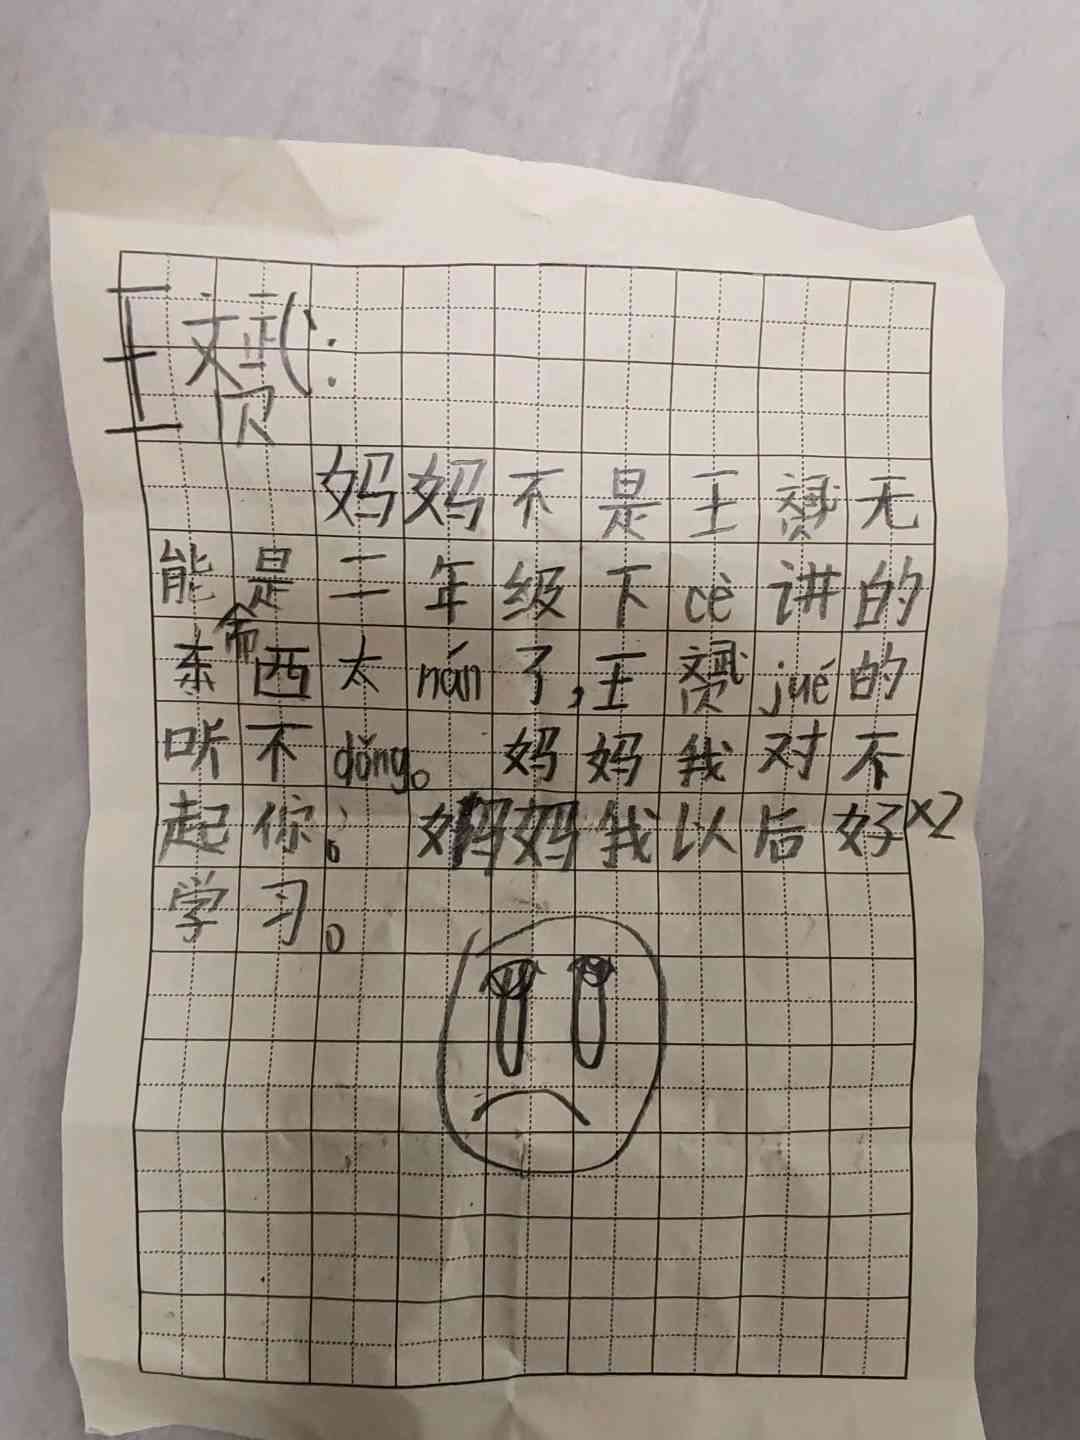 王赟：
妈妈不是王赟无
能是二年级下cè讲的
东西太nán了,王赟jué的
听不dǒng。妈妈我对不
起你。妈妈我以后好×2
学习。